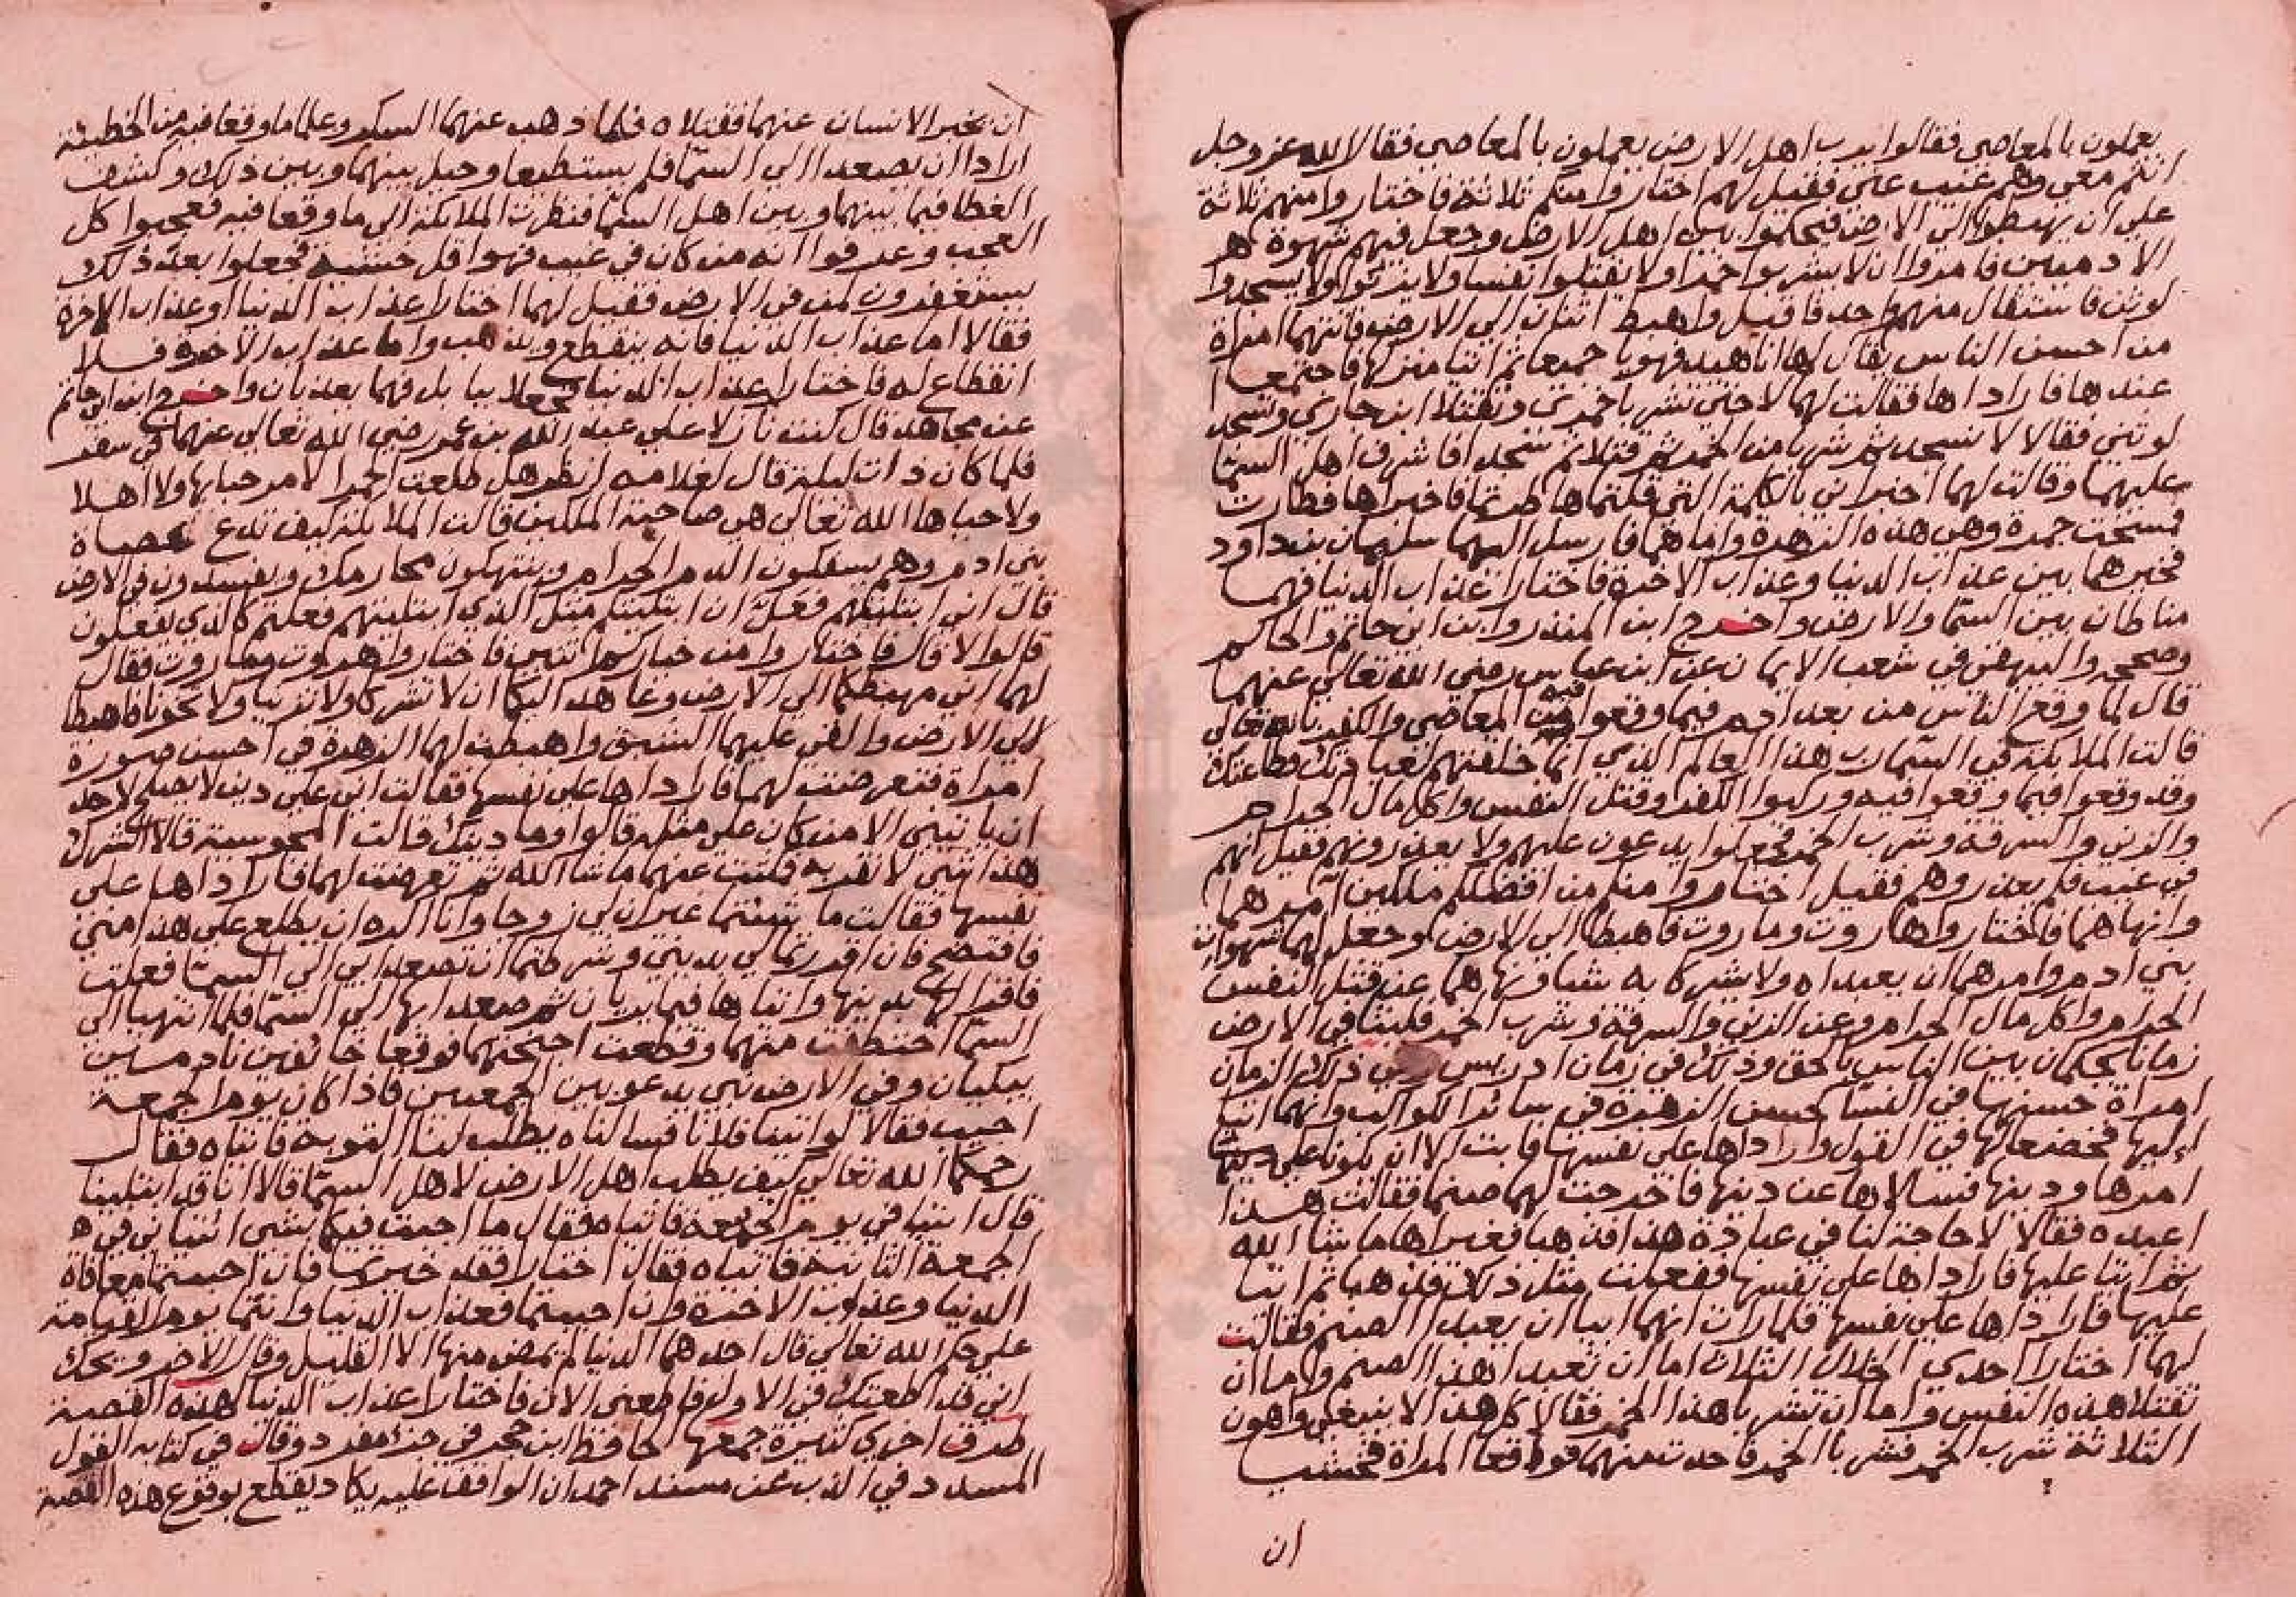 يعملون بالمعاصي فقالوا يرب اهل الارض يعملون بالمعاصي فقال الله عز وجل
انتم معي وهم غيب عني فقيل لهم اختاروا منكم ثلاثة فاختاروا منهم ثلاثة
علي ان يهبطوا الي الارض فيحكموا بين اهل الارض وجعل فيهم شهوة
الادميين فامروا ان لا يشربوا خمرا ولا يقتلوا نفسا ولا يزنوا ولا يسجدوا
لوثن فاستقال منهم واحد فاقيل واهبط اثنان الي الارض فاتتهما امراة
من احسن الناس يقال لها اناهيد فهوياها جميعا ثم اتيا منزلها فاجتمعا
عندها فاراداها فقالت لهما لا حتي تشربا خمري وتقتلا ابن جاري وتسجدا
لوثني فقالا لا نسجد ثم شربا من الخمر ثم قتلا ثم سجدا فاشرف اهل السما
عليهما وقالت لهما اخبراني بالكلمة التي قلتماها طرتما فاخبراها فطارت
فمسخت جمرة وهي هذه الزهرة واما هما فارسل اليهما سليمان بن داود
فخيرهما بين عذاب الدنيا وعذاب الاخرة فاختارا عذاب الدنيا فهما
مناطان بين السما والارض واخرج ابن المنذر وابن ابي حاتم والحاكم
وصححه والبيهقي في شعب الايمان عن ابن عباس رضي الله تعالي عنهما
قال لما وقع الناس من بعد ادم فيما وقعوا فيه من المعاصي والكفر بالله تعالي
قالت الملايكة في السما رب هذا العالم الذي انما خلقتهم لعبادتك وطاعتك
وقد وقعوا فيما وقعوا فيه وركبوا الكفر وقتل النفس واكل مال الحرام
والزني والسرقة وشرب الخمر فجعلوا يدعون عليهم ولا يعذرونهم فقيل انهم
في غيب فلم يعذروهم فقيل اختاروا منكم من افضلكم ملكين آمرهما
وانهاهما فاختاروا هاروت وماروت فاهبطا الي الارض وجعل لهما شهوات
بني ادم وامرهما ان يعبداه ولا يشركا به شيا ونهاهما عن قتل النفس
الحرام واكل مال الحرام وعن الزني والسرقة وشرب الخمر فلبثا في الارض
زمانا يحكمان بين الناس بالحق وذلك في زمان ادريس وفي ذلك الزمان
امراة حسنها في النسا كحسن الزهرة في سائر الكواكب وانهما اتيا
اليها فخضعا لها في القول واراداها علي نفسها فابت الا ان يكونا علي دينها
امرها ودينها فسالاها عن دينها فاخرجت لهما صنما فقالت هذا
اعبده فقالا لا حاجة لنا في عبادة هذا فذهبا فغبرا ما شا الله
ثم اتيا عليها فاراداها علي نفسها ففعلت مثل ذلك فذهبا ثم اتيا
عليها فاراداها علي نفسها فلما رات انهما ابيا ان يعبدا الصنم فقالت
لهما اختارا احدي الخلال الثلاث اما ان تعبدا هذا الصنم واما ان
تقتلا هذه النفس واما ان تشربا هذا الخمر فقالا كل هذا لا ينبغي واهون
الثلاثة شرب الخمر فشربا الخمر فاخذت منهما فوقعا المراة فخشيا
ان
ان يخبر الانسان عنهما فقتلاه فلما ذهب عنهما السكر وعلما ما وقعا فيه من الخطيئة
ارادا ان يصعدا الي السما فلم يستطيعا وحيل بينهما وبين ذلك وكشف
الغطا فيما بينهما وبين اهل السما فنظرت الملايكة الي ما وقعا فيه فعجبوا كل
العجب وعرفوا انه من كان في غيب فهو اقل خشية فجعلوا بعد ذلك
يستغفرون لمن في الارض فقيل لهما اختارا عذاب الدنيا او عذاب الاخرة
فقالا اما عذاب الدنيا فانه ينقطع ويذهب واما عذاب الاخرة فلا
انقطاع له فاختارا عذاب الدنيا فجعلا ببابل فهما يعذبان واخرج ابن ابي حاتم
عن مجاهد قال كنت نازلا علي عبد الله بن عمر رضي الله تعالي عنهما في سفر
فلما كان ذات ليلة قال لغلامه انظر هل طلعت الحمرا لا مرحبا بها ولا اهلا
ولا حياها الله تعالي هي صاحبة الملكين قالت الملايكة كيف تدع عصاة
بني ادم وهم يسفكون الدم الحرام وينتهكون محارمك ويفسدون في الارض
قال اني ابتليتهم فعل ان ابتليتكم مثل الذي ابتليتهم فعلتم كالذي يفعلون
قالوا لا قال فاختاروا من خياركم اثنين فاختاروا هاروت وماروت فقال
لهما اني مهبطكما الي الارض وعاهد اليكما ان لا تشركا ولا تزنيا ولا تخونا فاهبطا
الي الارض والقي عليهما الشبق واهبطت لهما الزهرة في احسن صورة
امراة فتعرضت لهما فاراداها علي نفسها فقالت اني علي دين لا يصلح لاحد
ان ياتيني الا من كان علي مثله قالوا وما دينك قالت المجوسية قالا الشرك
هذا شي لا نقر به فمكثت عنهما ما شا الله ثم تعرضت لهما فاراداها علي
نفسها فقالت ما شئتما غير ان لي زوجا وانا اكره ان يطلع علي هذا مني
فافتضح فان اقررتما لي بديني وشرطتما ان تصعدا بي الي السما فعلت
فاقرا لها بدينها واتياها فيما يريان ثم صعدا بها الي السما فلما انتهيا الي
السما اختطفت منهما وقطعت اجنحتهما فوقعا خائفين نادمين
يبكيان وفي الارض نبي يدعو بين الجمعتين فاذا كان يوم الجمعة
اجيب فقالا لو اتينا فلانا فسالناه يطلب لنا التوبة فاتياه فقال
رحمكما الله تعالي كيف يطلب اهل الارض لاهل السما قالا انا قد ابتلينا
قال ائتيا في يوم الجمعة فاتياه فقال ما اجبت فيكما بشي ائتياني في
الجمعة الثانية فاتياه فقال اختارا فقد خيرتما فان احببتما معافاة
الدنيا وعذاب الاخرة وان احببتما فعذاب الدنيا وانتما يوم القيامة
علي حكم الله تعالي قال احدهما الدنيا لم يمض منها الا القليل وقال الاخر ويحك
اني قد اطعتك في الاول فاطعني الان فاختارا عذاب الدنيا لهذه القصة
طرق اخري كثيرة جمعها الحافظ ابن حجر في جزء مفرد وقال في كتابه القول
المسدد في الذب عن مسند احمد ان الواقف عليه يكاد يقطع بوقوع هذه القصة